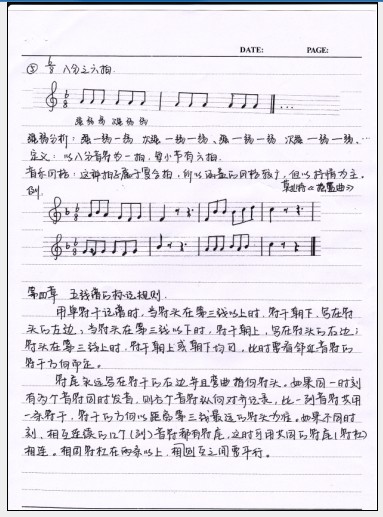 DATE: PAGE:
③ 6/8 八分之六拍.
强 弱 弱 次强 弱 弱
强弱分析: 强—弱—弱 次强—弱—弱、强—弱—弱 次强—弱—弱、…
定义: 以八分音符为一拍,每小节有六拍.
音乐风格: 这种拍子属于复合拍,所以涵盖的风格很广,但以抒情为主。
例.
第四章 五线谱的标记规则.
用单符干记谱时,当符头在第三线以上时,符干朝下,写在符
头的左边;当符头在第三线以下时,符干朝上,写在符头的右边;
符头在第三线上时,符干朝上或朝下均可,此时要看邻近音符的
符干方向而定。
符尾永远写在符干的右边并且弯曲指向符头。如果同一时刻
有两个音符同时发音,则各个音符纵向对齐记录,此一刻音符共用
一条符干,符干的方向以距离第三线最远的符头为准。如果不同时
刻,相互连续的几个(列)音符都有符尾,这时可用共同的符尾(符杠)
相连。相同符杠在两条以上,相互之间要平行。